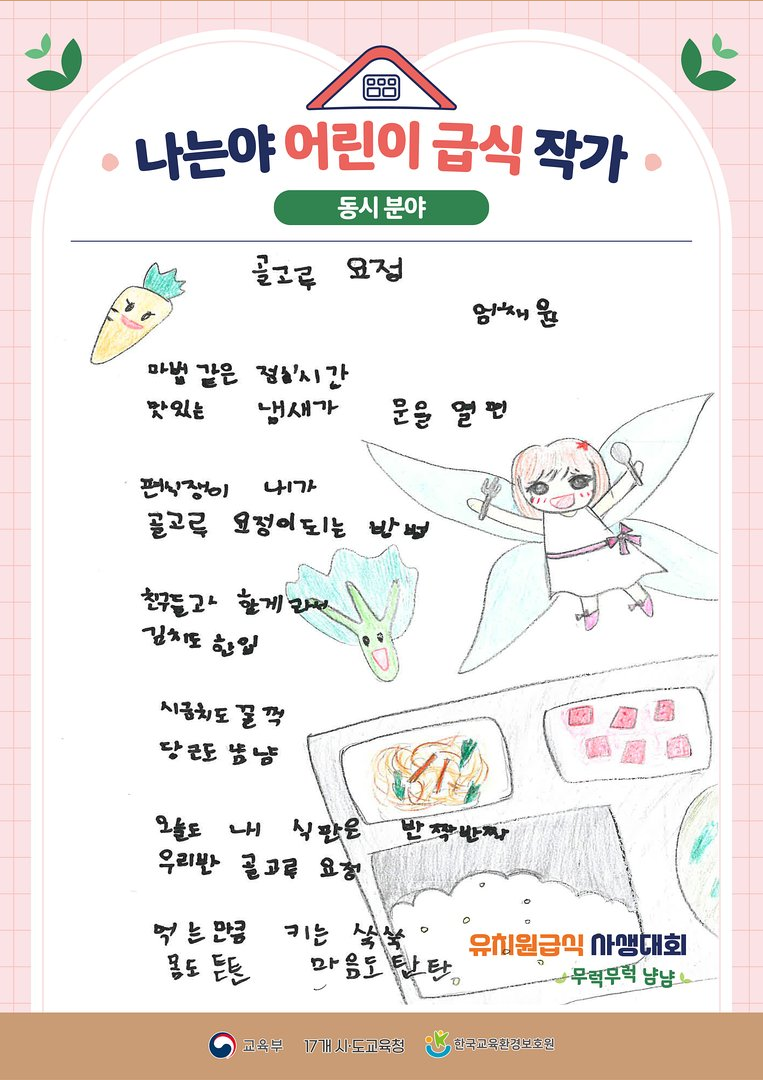 나는야 어린이 급식 작가
동시 분야
골고루 요정
엄채윤
마법 같은 점심시간
맛있는 냄새가 문을 열면
편식쟁이 내가
골고루 요정이 되는 방법
친구들과 함께라서
김치도 한입
시금치도 꿀꺽
당근도 냠냠
오늘도 내 식판은 반짝반짝
우리반 골고루 요정
먹는만큼 키는 쑥쑥
몸도 튼튼 마음도 탄탄
유치원급식 사생대회
무럭무럭 냠냠
교육부 17개 시·도교육청 한국교육환경보호원